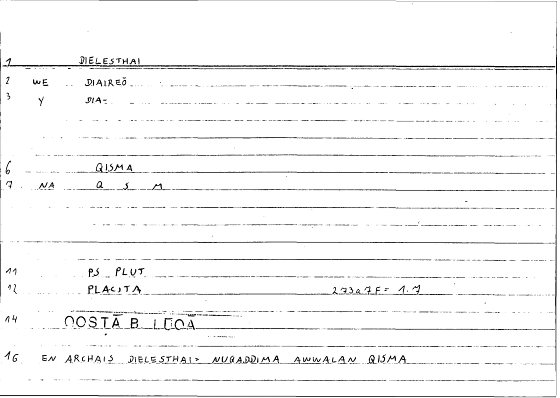 1 DIELESTHAI
2 WE DIAIREŌ
3 Y DIA-
6 QISMA
7 NA Q S M
11 PS PLUT
12 PLACITA 273a7F= 1.7
14
16 EN ARCHAIS DIELESTHAI> NUQADDIMA AWWALAN QISMA